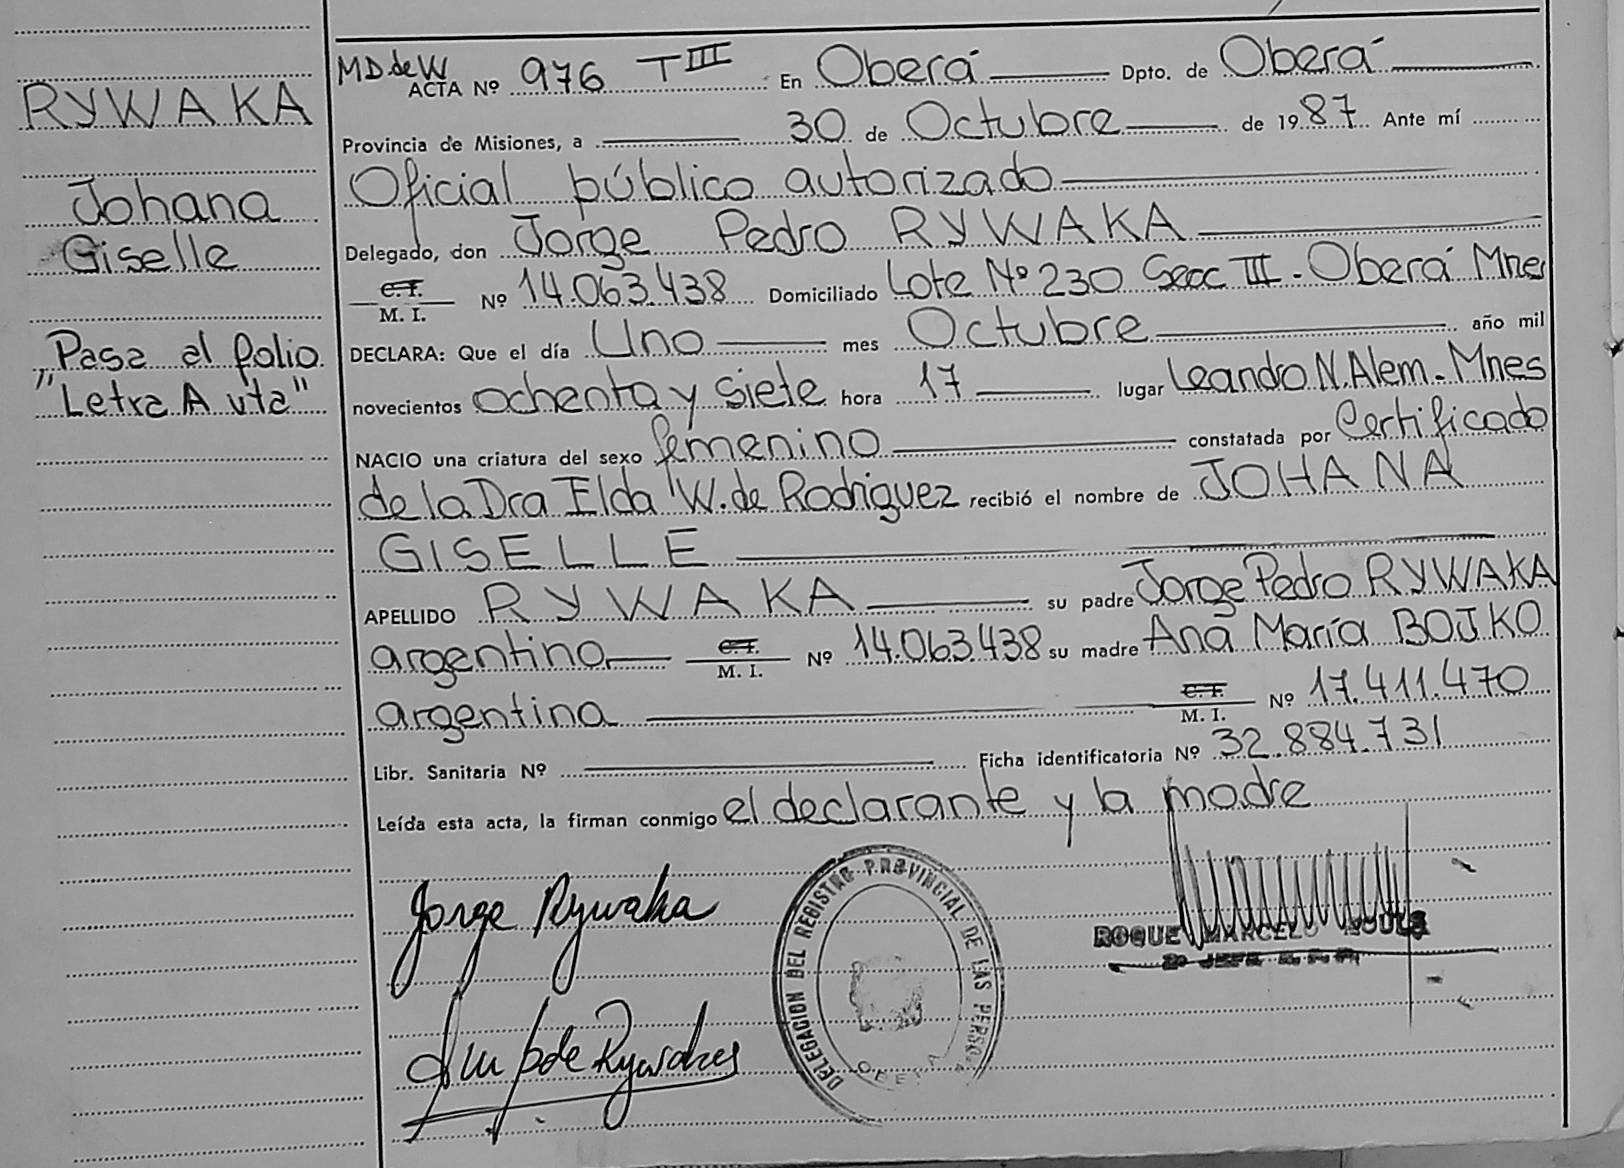 RYWAKA
Johana
Giselle
"Pasa al folio
"Letra A vta"
MD de W
ACTA Nº 976 TIII En Oberá Dpto. de Oberá
Provincia de Misiones, a 30 de Octubre de 1987 Ante mí
Oficial público autorizado
Delegado, don Jorge Pedro RYWAKA
C.I.
M. I. Nº 14.063.438 Domiciliado Lote Nº 230 Secc III - Oberá Mnes
DECLARA: Que el día Uno mes Octubre año mil
novecientos ochenta y siete hora 17 lugar Leandro N. Alem - Mnes
NACIO una criatura del sexo femenino constatada por Certificado
de la Dra Ilda W. de Rodriguez recibió el nombre de JOHANA
GISELLE
APELLIDO RYWAKA su padre Jorge Pedro RYWAKA
argentino C.I.
M. I. Nº 14.063.438 su madre Ana María BOJKO
argentina C.I.
M. I. Nº 17.411.470
Libr. Sanitaria Nº Ficha identificatoria Nº 32.884.731
Leída esta acta, la firman conmigo el declarante y la madre
Jorge Rywaka
de Rywaka
DELEGACION DEL REGISTRO PROVINCIAL DE LAS PERSO
ROQUE MARCELO